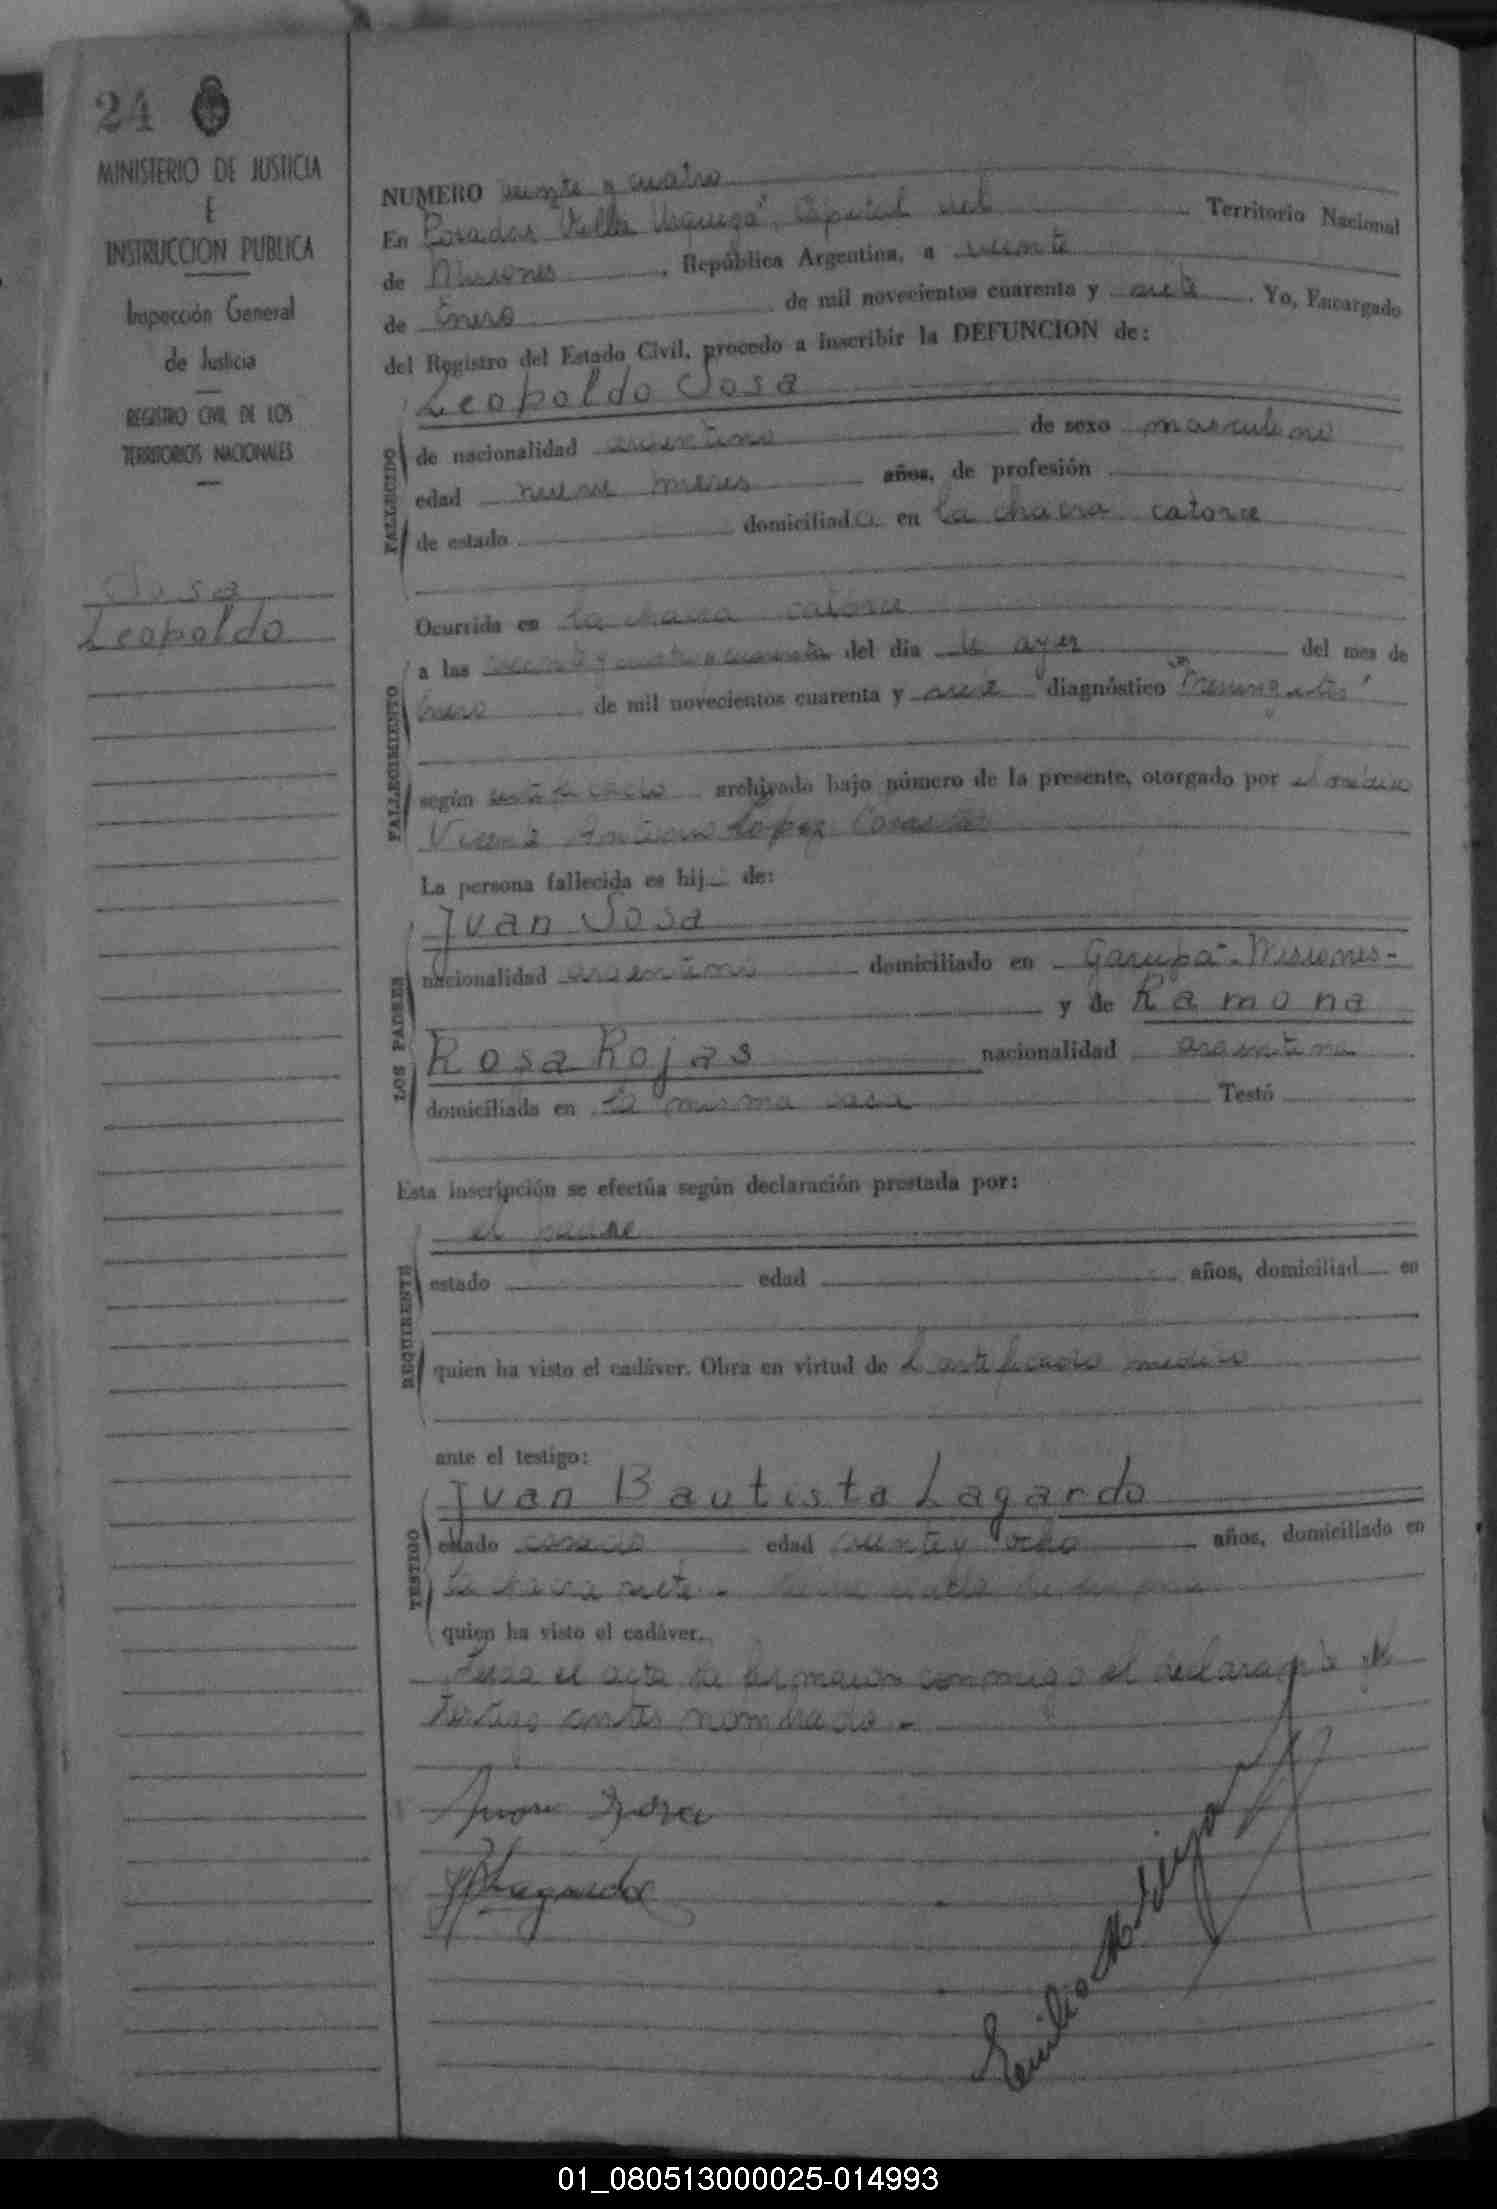 24
MINISTERIO DE JUSTICIA
E
INSTRUCCION PUBLICA
Inspección General
de Justicia
REGISTRO CIVIL DE LOS
TERRITORIOS NACIONALES
Sosa
Leopoldo
NUMERO veinte y cuatro
En Posadas "Villa Urquiza", Capital del Territorio Nacional
de Misiones, República Argentina, a veinte
de Enero de mil novecientos cuarenta y siete. Yo, Encargado
del Registro del Estado Civil, procedo a inscribir la DEFUNCION de:
Leopoldo Sosa
FALLECIDO
de nacionalidad argentino de sexo masculino
edad nueve meses años, de profesión
de estado domiciliado en la chacra catorce
Ocurrida en la chacra catorce
FALLECIMIENTO
a las y del día de ayer del mes de
Enero de mil novecientos cuarenta y siete diagnóstico "Meningitis"
según certificado archivado bajo número de la presente, otorgado por el médico
Vicente López
La persona fallecida es hij de:
LOS PADRES
Juan Sosa
nacionalidad argentino domiciliado en Garupá - Misiones -
y de Ramona
Rosa Rojas nacionalidad argentina
domiciliada en la misma casa Testó
Esta inscripción se efectúa según declaración prestada por:
REQUIRENTE
el padre
estado edad años, domiciliad en
quien ha visto el cadáver. Obra en virtud de certificado médico
ante el testigo:
TESTIGO
Juan Bautista Lagardo
estado casado edad veinte y ocho años, domiciliado en
la chacra siete -
quien ha visto el cadáver.
el acta la firmaron conmigo el declarante y el
testigo antes nombrado. -
Juan Sosa
JBLagardo
Emilio
01_080513000025-014993